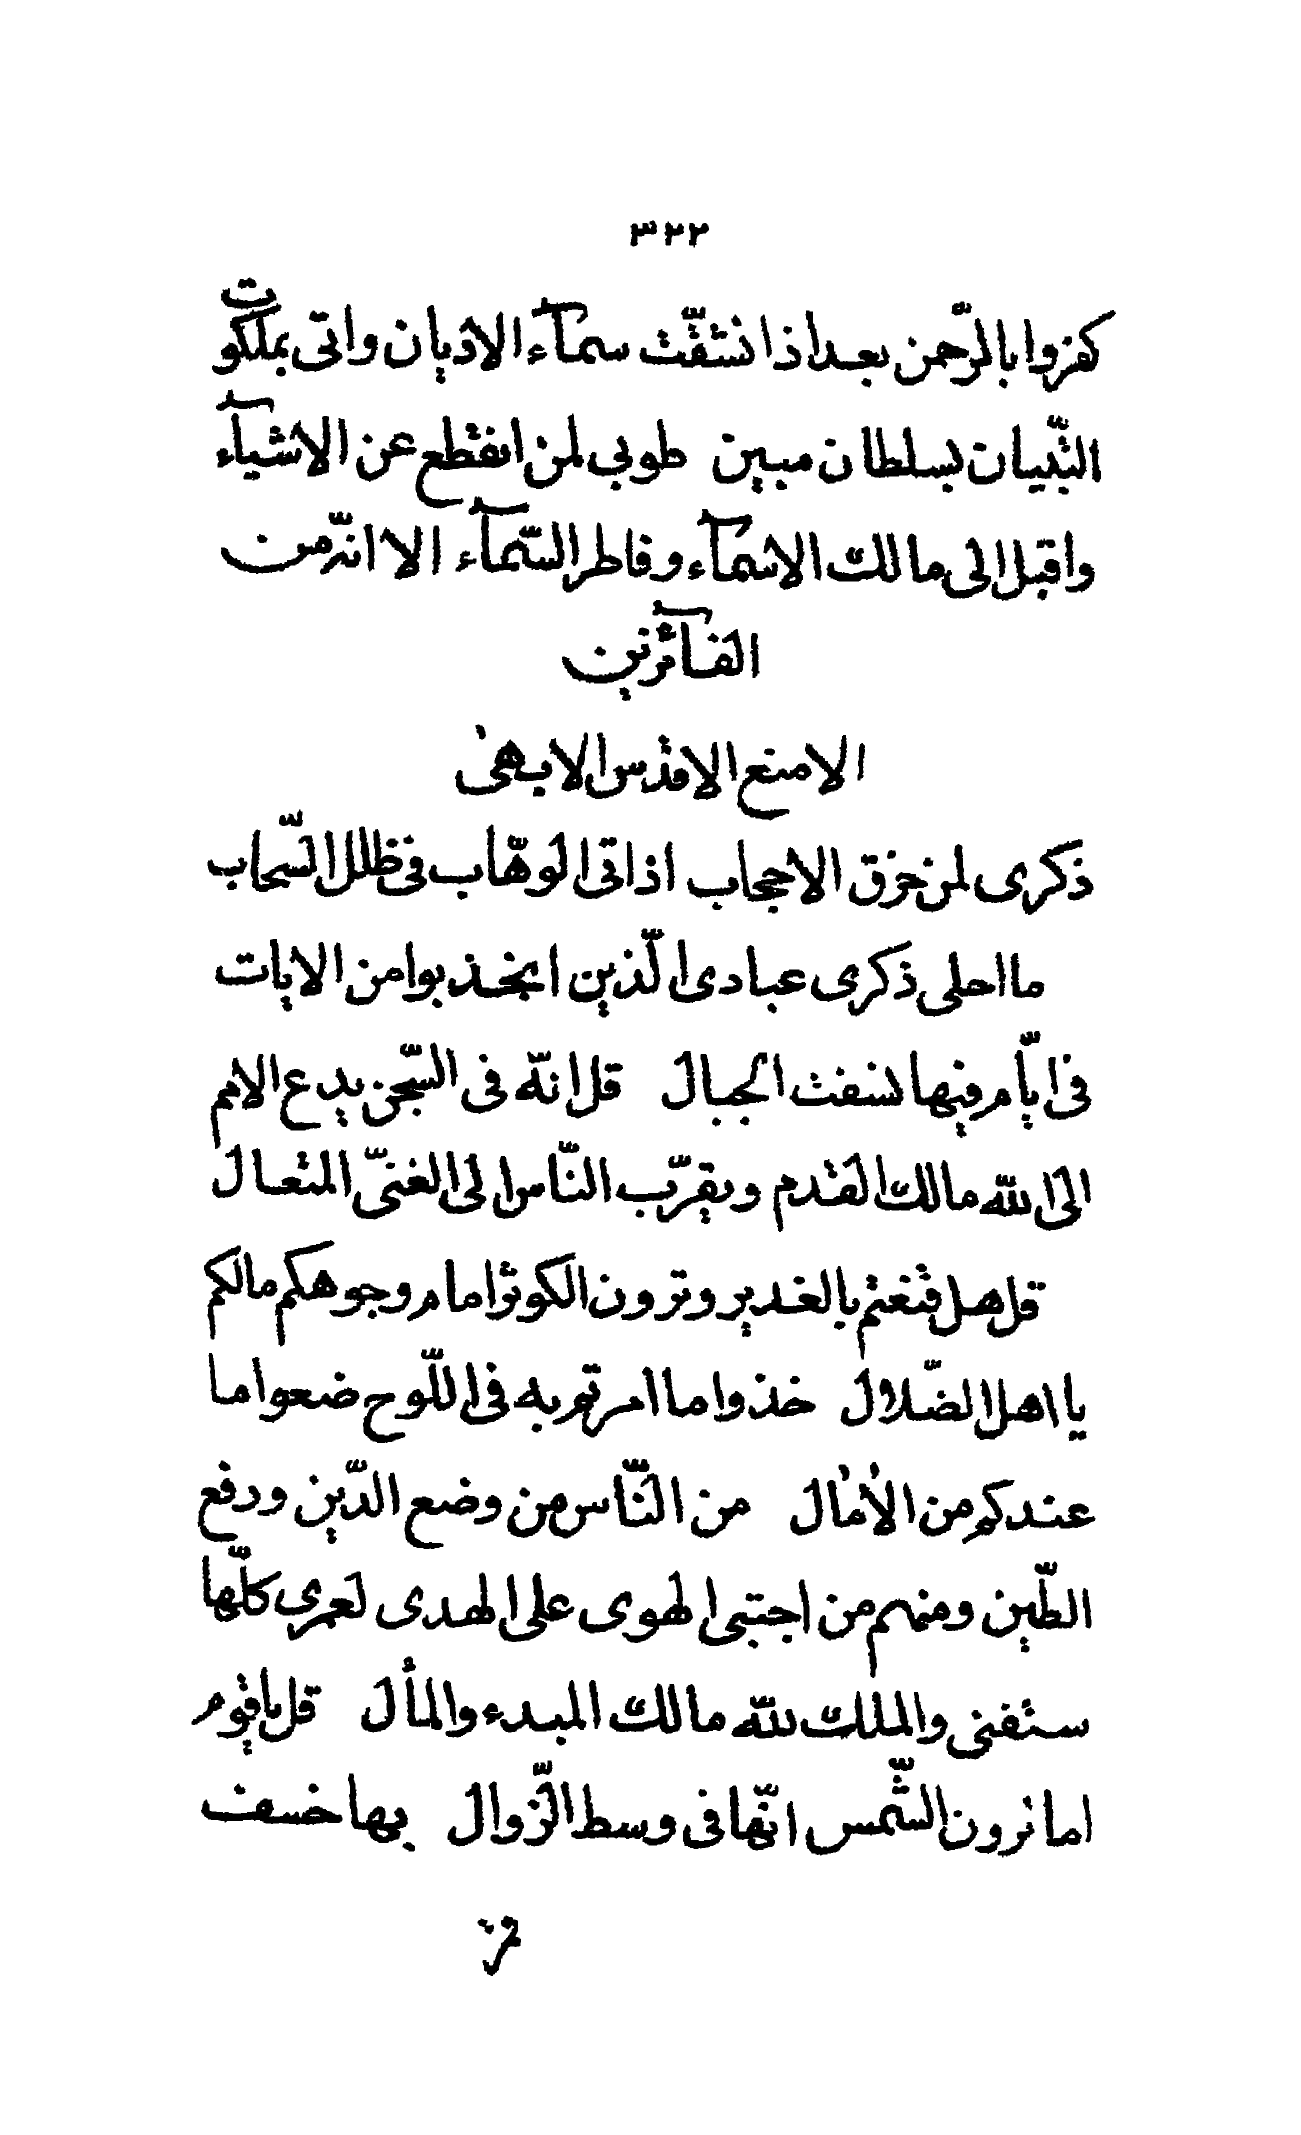 ٣٢٢
كفروا بالرّحمن بعد اذ انشقّت سمآء الاديان واتى بملكوت
التّبيان بسلطان مبين طوبى لمن انقطع عن الاشيآء
واقبل الى مالك الاسمآء وفاطر السّمآء الا انّه من
الفآئزين
الامنع الاقدس الابهى
ذكرى لمن خرق الاحجاب اذ اتى الوهّاب فى ظلل السّحاب
ما احلى ذكرى عبادى الّذين انجذبوا من الايات
فى ايّام فيها نسفت الجبال قل انّه فى السّجن يدع الامم
الى الله مالك القدم ويقرّب النّاس الى الغنىّ المتعال
قل هل قنعتم بالغدير وترون الكوثر امام وجوهكم مالكم
يا اهل الضّلال خذوا ما امرتم به فى اللّوح ضعوا ما
عندكم من الأمال من النّاس من وضع الدّين ورفع
الطّين ومنهم من اجتبى الهوى على الهدى لعمرى كلّها
ستفنى والملك لله مالك المبدء والمأل قل يا قوم
اما ترون الشّمس انّها فى وسط الزّوال بها خسف